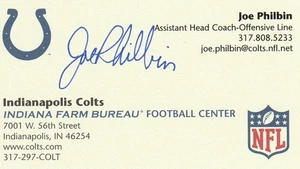 Joe Philbin
Assistant Head Coach-Offensive Line
317.808.5233
joe.philbin@colts.nfl.net
Joe Philbin
Indianapolis Colts
INDIANA FARM BUREAU FOOTBALL CENTER
7001 W. 56th Street
Indianapolis, IN 46254
www.colts.com
317-297-COLT
NFL